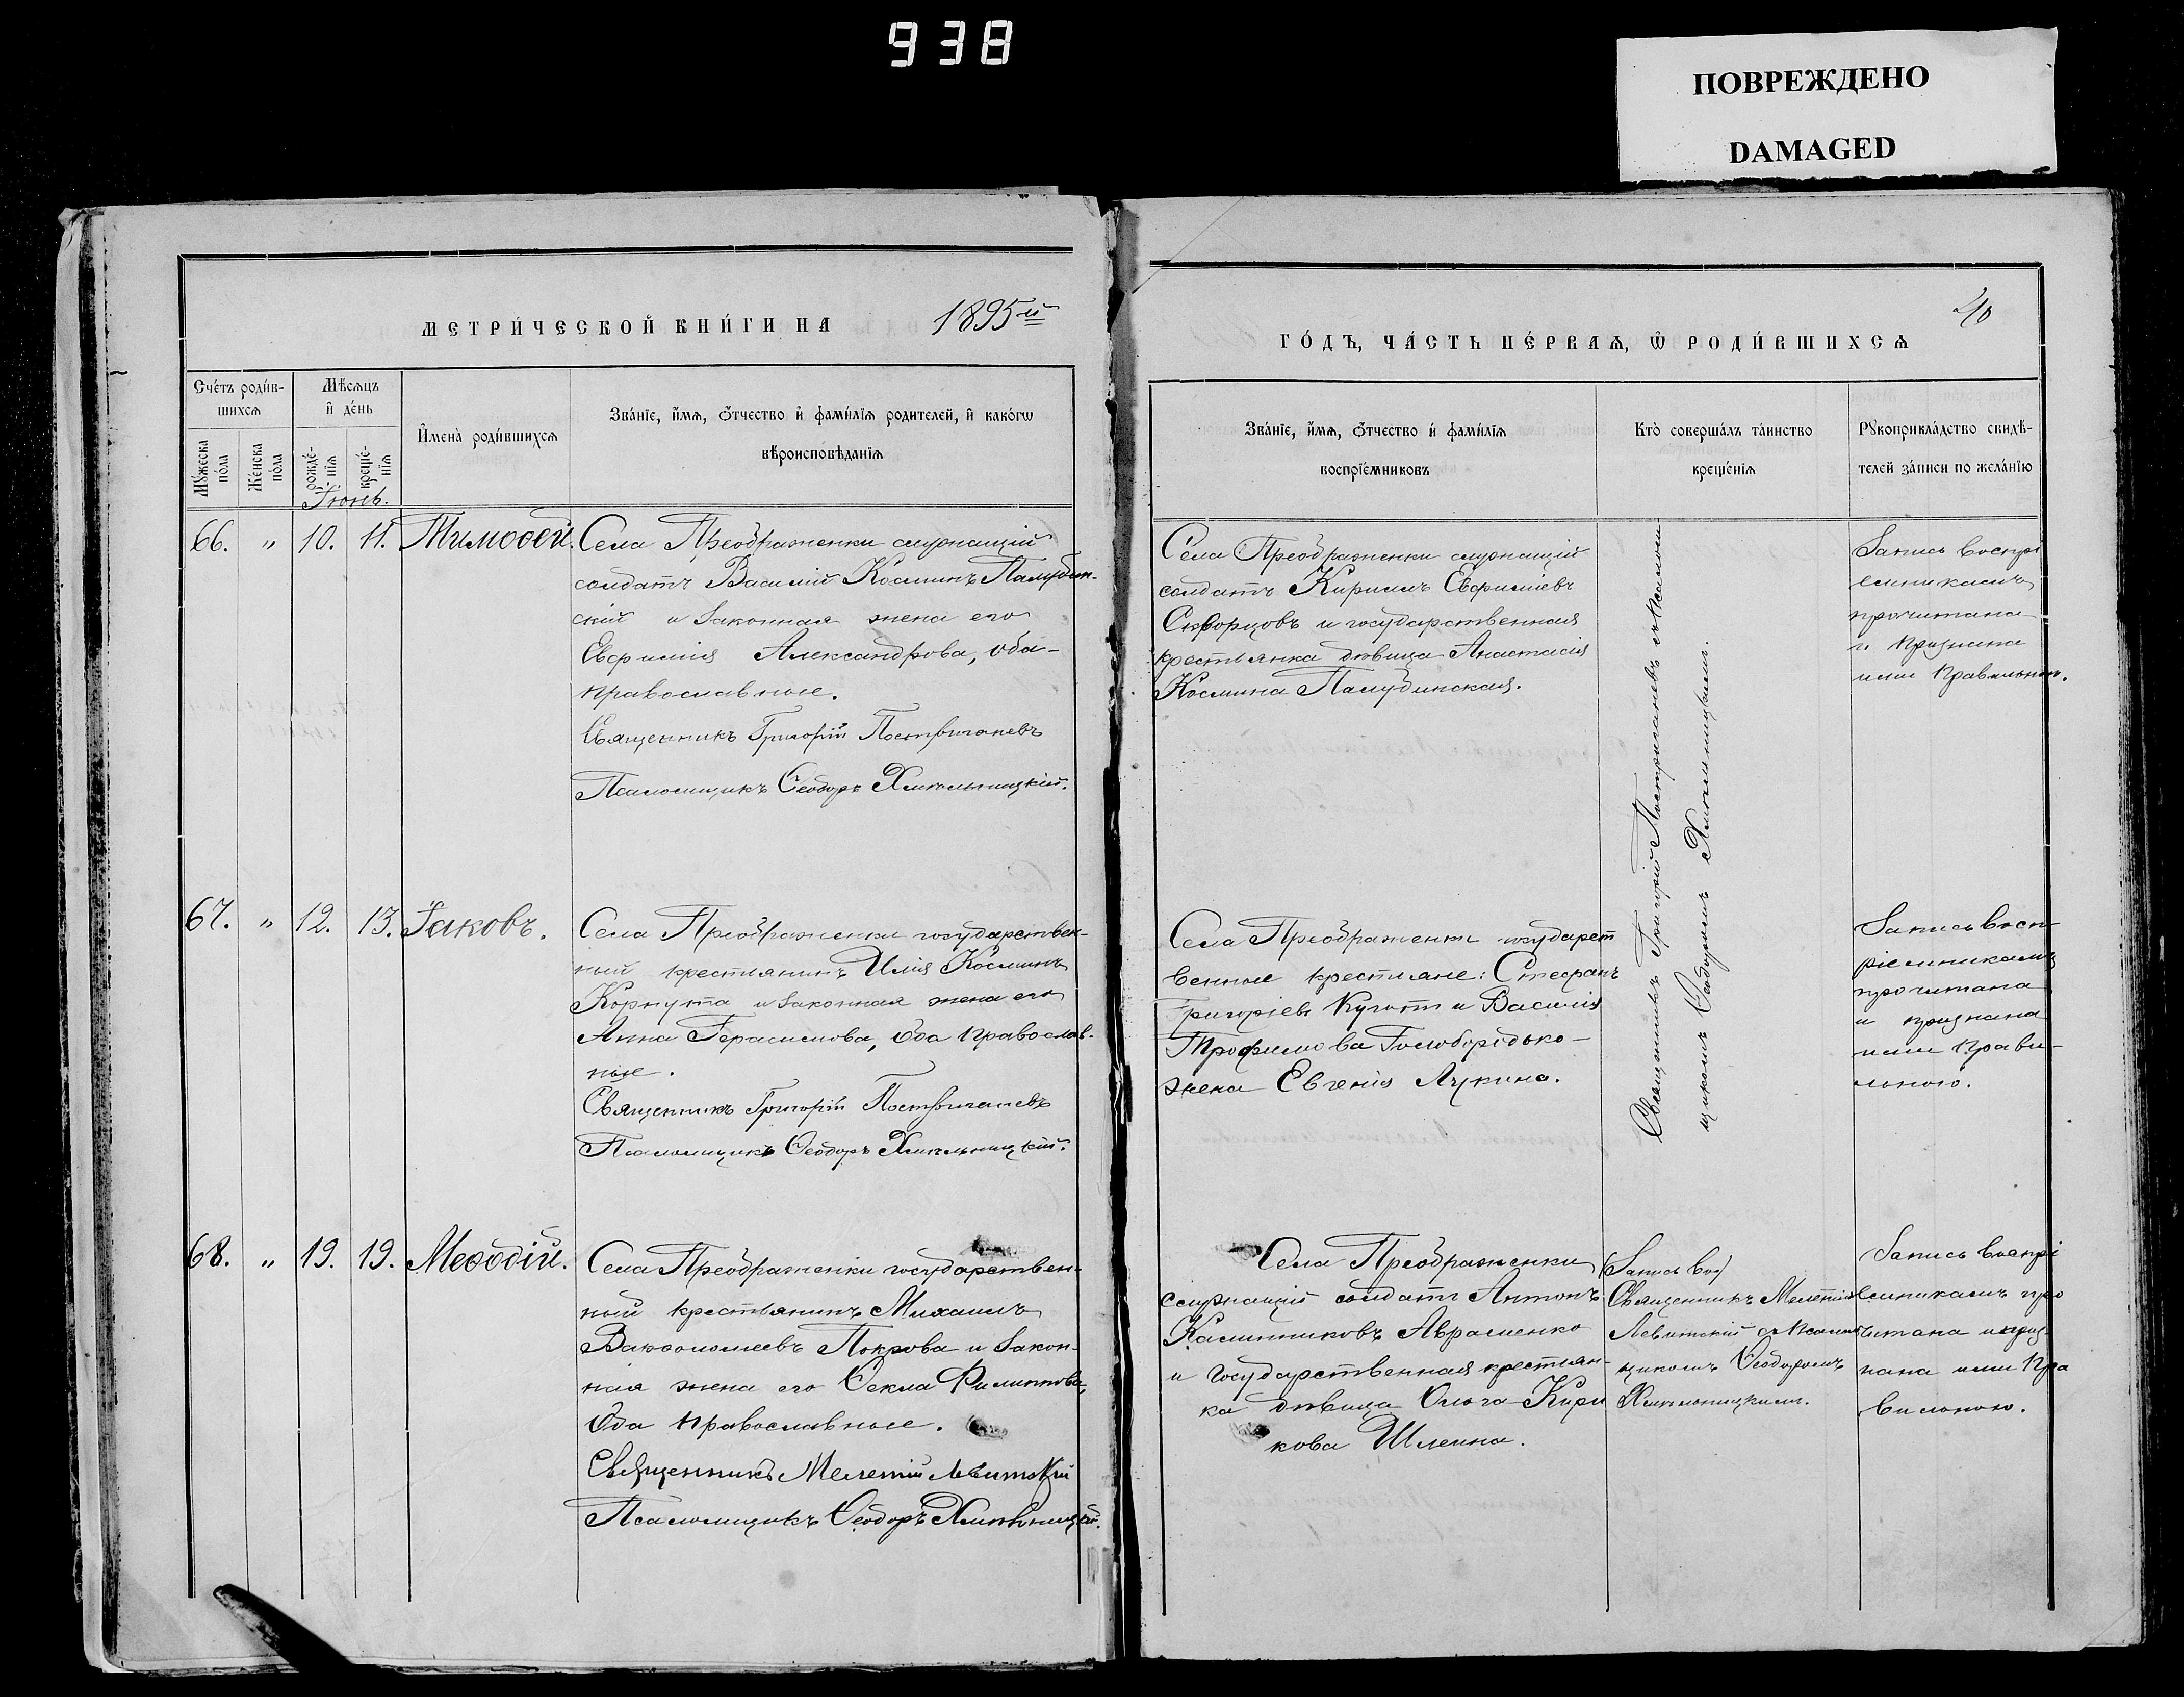 938
ПОВРЕЖДЕНО
DAMAGED
МЕТРИ́ЧЕСКОЙ КНИ́ГИ НА 1895й
Сче́тъ роди́в-
шихсѧ
Мѣ́сѧцъ
и҆ де́нь
И҆мена̀ роди́вшихсѧ
Зва́нїе, и҆́мѧ, ѻ҆́тчество и҆ фами́лїѧ родителей, и҆ како́гѡ
вѣроисповѣ́данїѧ
Мꙋ́жеска
по́ла
Же́нска
по́ла
рожде́-
нїѧ
креще́-
нїѧ
Іюнь.
66. " 10. 11. Тимоѳей. Села Преображенки служащій
солдатъ Василій Косминъ Палубин-
скій и законная жена его
Евфимія Александрова, оба
православные.
Священникъ Григорій Постригачевъ
Псаломщикъ Ѳеодоръ Хмѣльницкій.
67. " 12. 13. Іаковъ. Села Преображенки государствен-
ный крестьянинъ Илія Косминъ
Корнута и законная жена его
Анна Герасимова, оба православ-
ные.
Священникъ Григорій Постригачевъ
Псаломщикъ Ѳеодоръ Хмѣльницкій.
68. " 19. 19. Меѳодій. Села Преображенки государствен-
ный крестьянинъ Михаилъ
Варѳоломеевъ Покрова и закон-
ная жена его Ѳекла Филиппова,
оба православные.
Священникъ Мелетій Левитскій
Псаломщикъ Ѳеодоръ Хмѣльницкій.
ГО́ДЪ, ЧА́СТЬ ПЕ́РВАѦ, Ѡ҆ РОДИ́ВШИХСѦ
40
Зва́нїе, и҆́мѧ, ѻ҆́тчество и҆ фами́лїѧ
воспрїе́мниковъ
Кто̀ соверша́лъ та́инство
креще́нїѧ
Рꙋкоприкла́дство свидѣ́-
телей за́писи по жела́нїю
Села Преображенки служащій
солдатъ Кириллъ Евфиміевъ
Скворцовъ и государственная
крестьянка дѣвица Анастасія
Космина Палубинская.
Священникъ Григорій Постригачевъ съ псалом
щикомъ Ѳеодоромъ Хмѣльницкимъ.
Запись воспрі
емникамъ
прочитана
и признана
ими правильною.
Села Преображенки государст
венные крестьяне: Стефанъ
Григоріевъ и Василія
Трофимова Голобородько
жена Евгенія Лукина.
Запись восп
ріемникамъ
прочитана
и признана
ими прави-
льною.
Села Преображенки
служащій солдатъ Антонъ
Калинниковъ Авраменко
и государственная крестьян-
ка дѣвица Ольга Кири
кова Шлеина.
(Запись вос)
Священникъ Мелетій
Левитскій съ псалом
щикомъ Ѳеодоромъ
Хмѣльницкимъ.
Запись воспрі
емникамъ про
читана и приз-
нана ими пра
вильною.